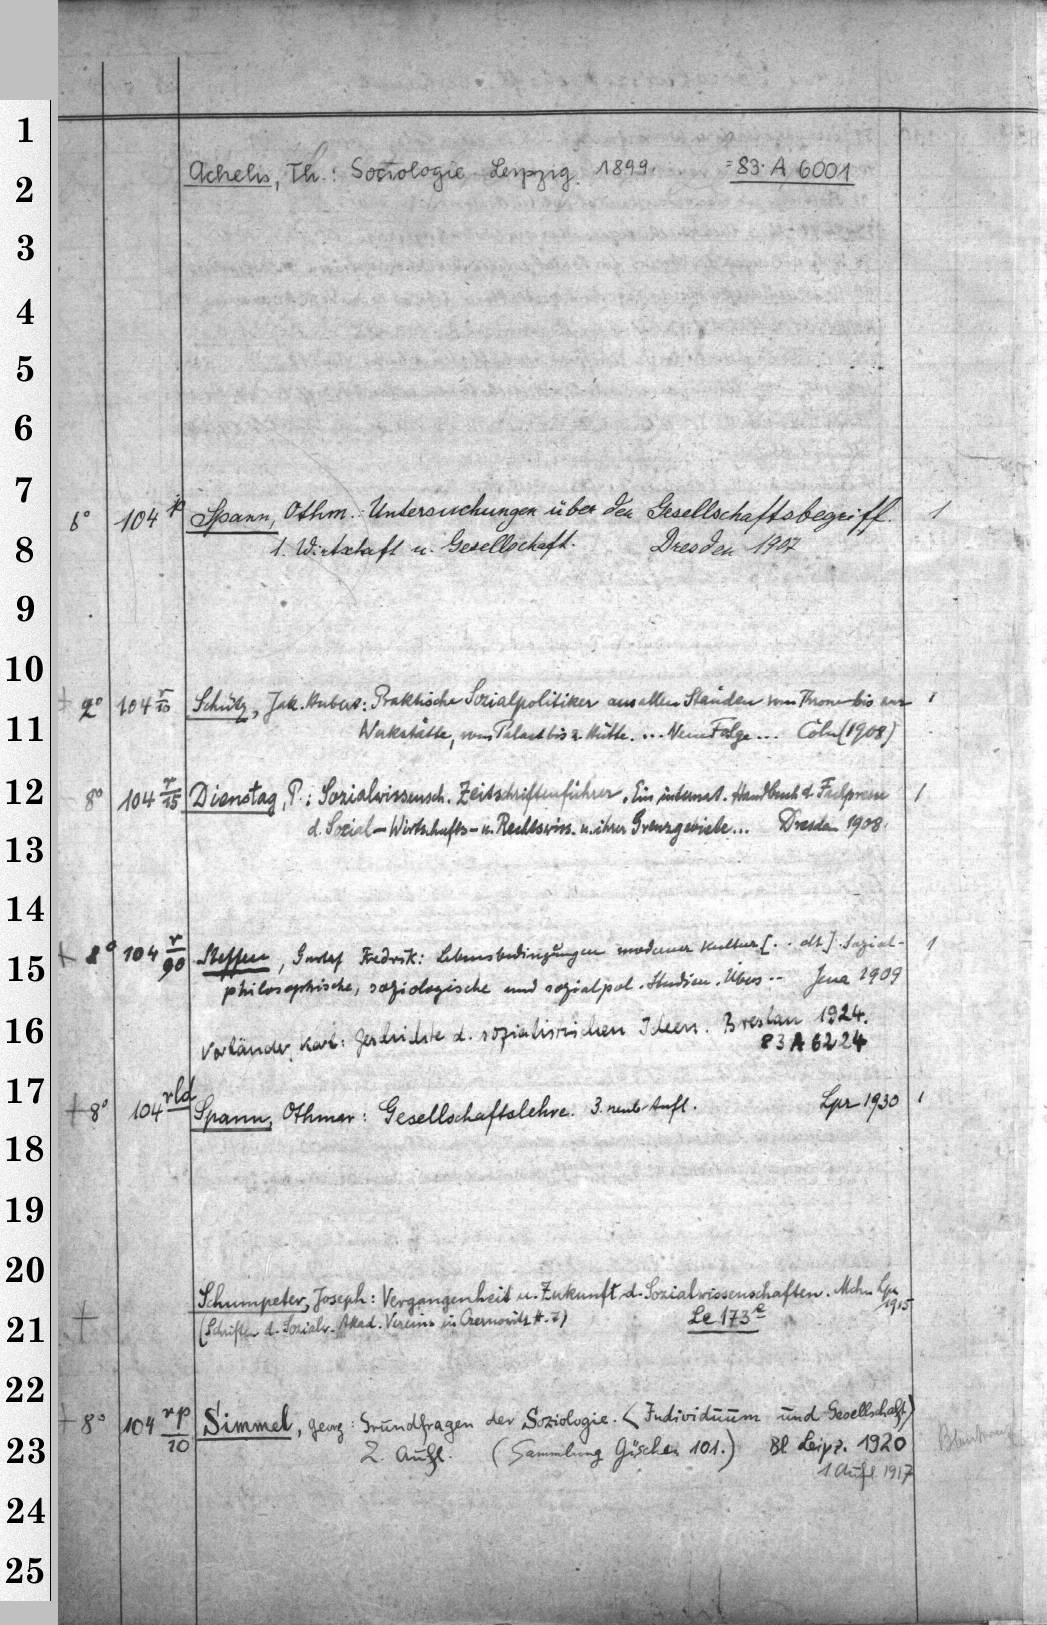 1
2
3
4
5
6
7
8
9
10
11
12
13
14
15
16
17
18
19
20
21
22
23
24
25
Achelis, Th.: Soziologie Leipzig 1899. =83. A 6001
6° 104 p Spann, Othm.: Untersuchungen über den Gesellschaftsbegriff. 1
1. Wirtschaft u. Gesellschaft. Dresden 1907
+ 2° 104 r/10 Schütz, Jak. Hubert: Praktische Sozialpolitiker aus allen Ständen vom Throne bis zur 1
Werkstätte, vom Palast bis z. Hütte. ... Neue Folge ... Cöln (1908)
8° 104 r/15 Dienstag, P.: Sozialwissensch. Zeitschriftenführer. Ein internat. Handbuch d. Fachpresse 1
d. Sozial- Wirtschafts- u. Rechtswiss. u. ihrer Grenzgebiete... Dresden 1908.
+ 8° 104 r/90 Steffen, Gustaf Fredrik: Lebensbedingungen moderner Kultur [.. dt.]. Sozial- 1
philosophische, soziologische und sozialpol. Studien. Übers... Jena 1909
Vorländer, Karl: Geschichte d. sozialistischen Ideen. Breslau 1924.
83 A 6224
+ 8° 104 rld Spann, Othmar: Gesellschaftslehre. 3. neub. Aufl. Lpz 1930 1
+ Schumpeter, Joseph: Vergangenheit u. Zukunft d. Sozialwissenschaften. Mchn Lpz
1915
(Schriften d. Sozialw. Akad. Vereins in Czernowitz H. 7) Le 173e
+ 8° 104 rp/10 Simmel, Georg: Grundfragen der Soziologie. (Individuum und Gesellschaft)
2. Aufl. (Sammlung Göschen 101.) Bl Leipz. 1920
1 Aufl. 1917